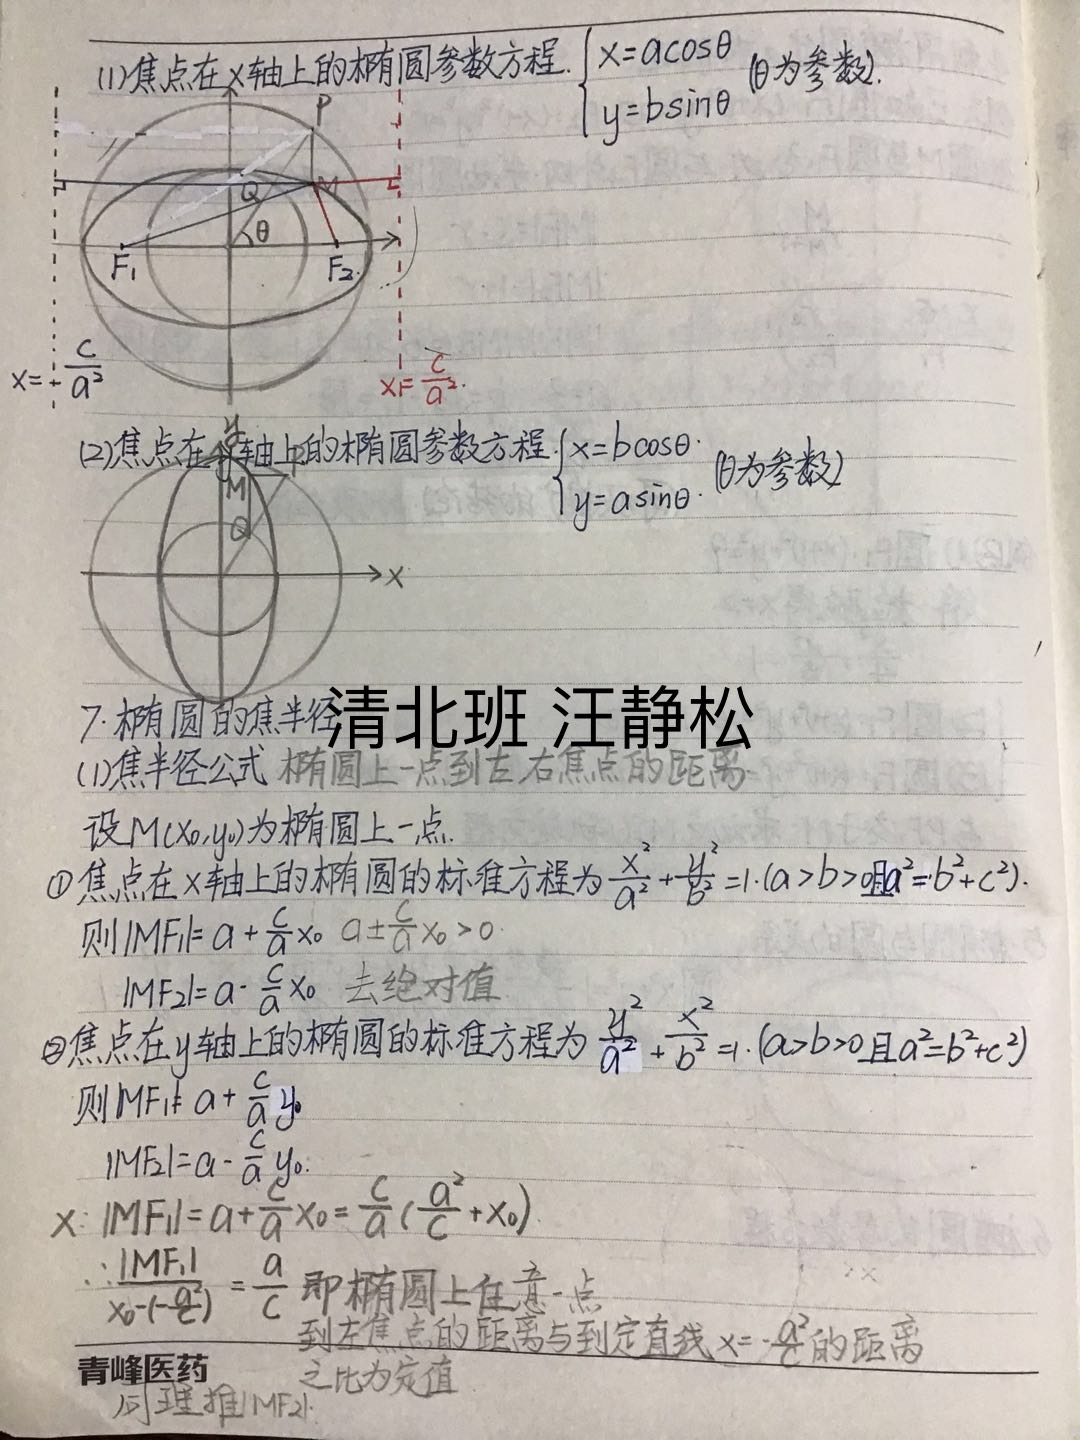 (1)焦点在x轴上的椭圆参数方程. {x=acosθ y=bsinθ (θ为参数).
P
Q M
θ
F₁ F₂
x=-c/a² x=c/a².
(2)焦点在y轴上的椭圆参数方程. {x=bcosθ. y=asinθ. (θ为参数)
y
M
Q
x
7.椭圆的焦半径
清北班 汪静松
(1)焦半径公式 椭圆上一点到左,右焦点的距离
设M(x₀,y₀)为椭圆上一点.
①焦点在x轴上的椭圆的标准方程为x²/a²+y²/b²=1.(a>b>0且a²=b²+c²).
则|MF₁|=a+c/a x₀ a±c/a x₀>0
|MF₂|=a-c/a x₀ 去绝对值
②焦点在y轴上的椭圆的标准方程为y²/a²+x²/b²=1.(a>b>0且a²=b²+c²)
则|MF₁|=a+c/a y₀
|MF₂|=a-c/a y₀.
|MF₁|=a+c/a x₀=c/a(a²/c+x₀)
∴|MF₁|/x₀-(-a²/c)=a/c 即椭圆上任意一点
到左焦点的距离与到定直线x=-a²/c的距离
之比为定值
青峰医药
同理推|MF₂|.